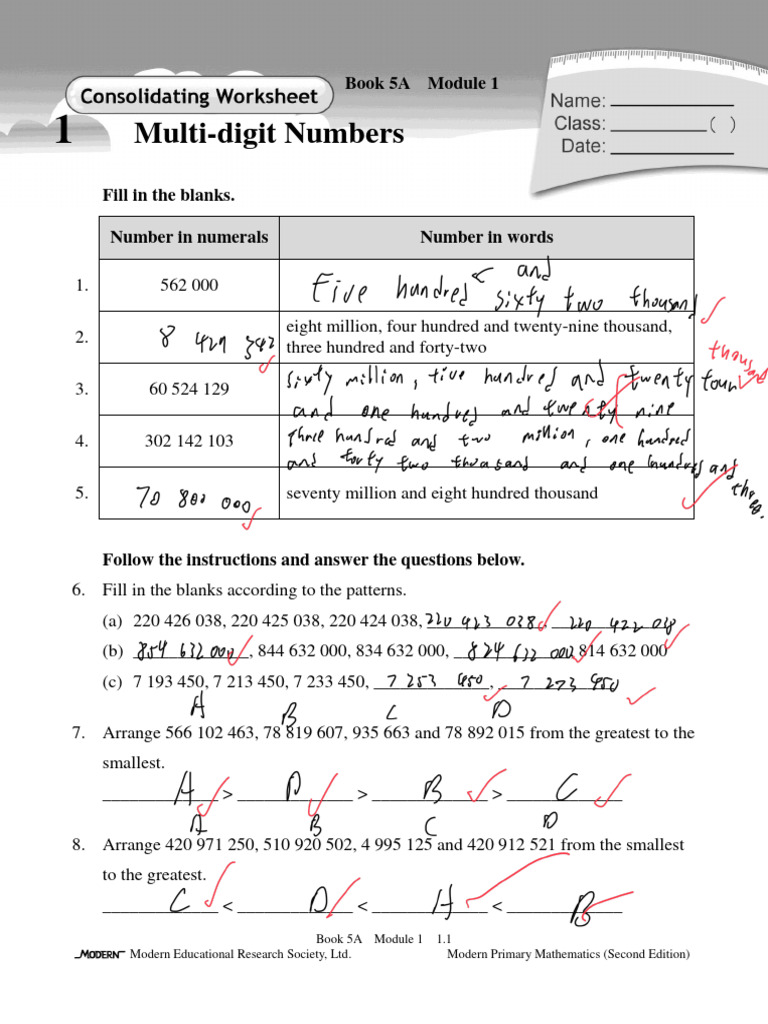 Book 5A Module 1
Consolidating Worksheet
1 Multi-digit Numbers
Name:
Class: ( )
Date:
Fill in the blanks.
Number in numerals Number in words
1. 562 000 Five hundred and sixty two thousand
2. 8 429 342 eight million, four hundred and twenty-nine thousand,
three hundred and forty-two
thousand
3. 60 524 129 sixty million, five hundred and twenty four
and one hundred and twenty nine
4. 302 142 103 three hundred and two million, one hundred
and forty two thousand and one hundred and three.
5. 70 800 000 seventy million and eight hundred thousand
Follow the instructions and answer the questions below.
6. Fill in the blanks according to the patterns.
(a) 220 426 038, 220 425 038, 220 424 038, 220 423 038, 220 422 08
(b) 854 632 000, 844 632 000, 834 632 000, 824 632 000, 814 632 000
(c) 7 193 450, 7 213 450, 7 233 450, 7 253 450, 7 273 450
A B C D
7. Arrange 566 102 463, 78 819 607, 935 663 and 78 892 015 from the greatest to the
smallest.
A > D > B > C
A B C D
8. Arrange 420 971 250, 510 920 502, 4 995 125 and 420 912 521 from the smallest
to the greatest.
C < D < A < B
Book 5A Module 1 1.1
MODERN Modern Educational Research Society, Ltd. Modern Primary Mathematics (Second Edition)